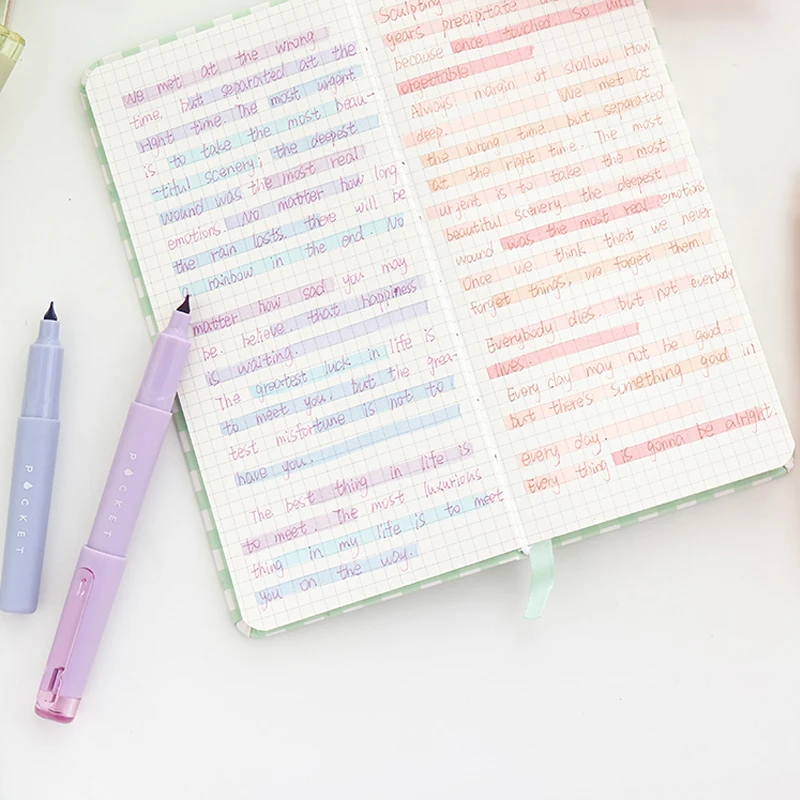 We met at the wrong
time, but separated at the
right time. The most urgent
is to take the most beau-
-tiful scenery; the deepest
wound was the most real
emotions. No matter how long
the rain lasts. there will be
a rainbow in the end. No
matter how sad you may
be. believe that happiness
is waiting.
The greatest luck in life is
to meet you, but the grea-
test misfortune is not to
have you.
The best thing in life is
to meet. The most luxurious
thing in my life is to meet
you on the way.
Sculpting
years precipitate
because once touched so un
orgettable
Always margin of shallow How
deep. We met at
the wrong time but separated
at the right time. The most
urgent is to take the most
beautiful scenery the deepest
wound was the most real emotions
Once we think that we never
forget things, we forget them.
Everybody dies. but not everybody
lives.
Every day may not be good...
but there's something good in
every day.
Every thing is gonna be alright.
POCKET
POCKET